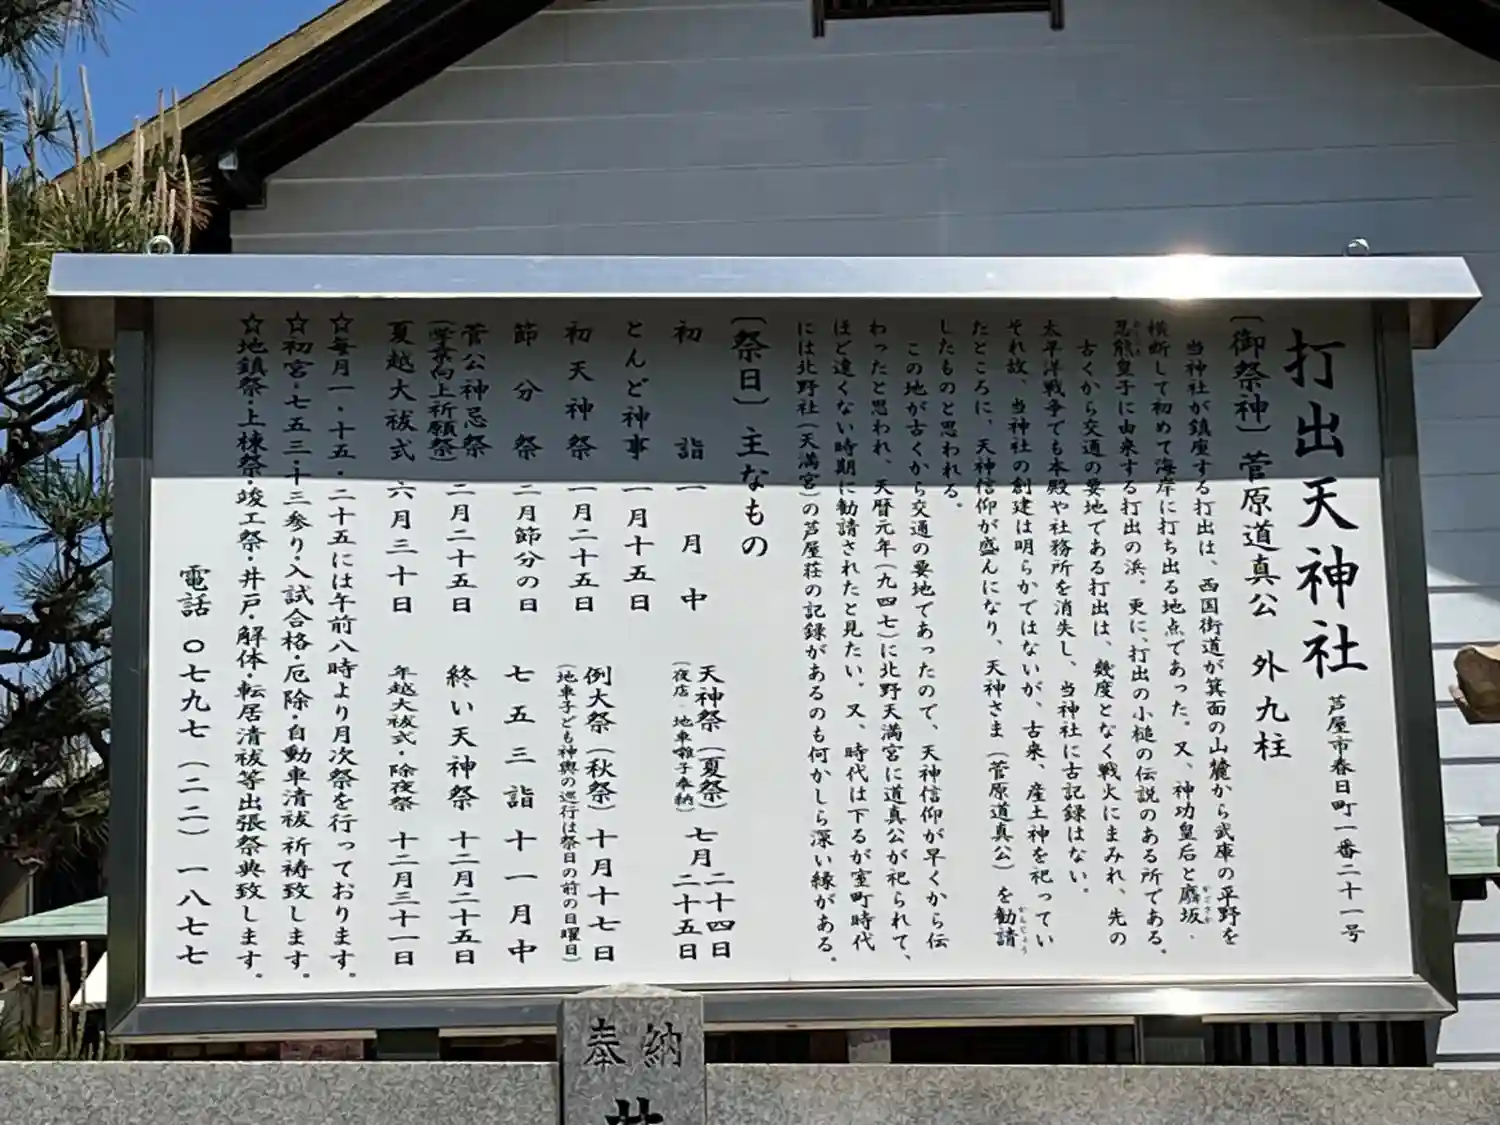 打出天神社 芦屋市春日町一番二十一号
〔御祭神〕菅原道真公 外九柱
当神社が鎮座する打出は、西国街道が箕面の山麓から武庫の平野を
横断して初めて海岸に打ち出る地点であった。又、神功皇后と麛坂・
忍熊皇子に由来する打出の浜。更に、打出の小槌の伝説のある所である。
古くから交通の要地である打出は、幾度となく戦火にまみれ、先の
太平洋戦争でも本殿や社務所を消失し、当神社に古記録はない。
それ故、当神社の創建は明らかではないが、古来、産土神を祀ってい
たところに、天神信仰が盛んになり、天神さま（菅原道真公）を勧請
したものと思われる。
この地が古くから交通の要地であったので、天神信仰が早くから伝
わったと思われ、天暦元年（九四七）に北野天満宮に道真公が祀られて、
ほど遠くない時期に勧請されたと見たい。又、時代は下るが室町時代
には北野社（天満宮）の芦屋荘の記録があるのも何かしら深い縁がある。
〔祭日〕主なもの
初詣 一月中
とんど神事 一月十五日
初天神祭 一月二十五日
節分祭 二月節分の日
菅公神忌祭 二月二十五日
（学業向上祈願祭）
夏越大祓式 六月三十日
天神祭（夏祭） 七月二十四日
二十五日
（夜店・地車囃子奉納）
例大祭（秋祭）十月十七日
（地車子ども神輿の巡行は祭日の前の日曜日）
七五三詣 十一月中
終い天神祭 十二月二十五日
年越大祓式・除夜祭 十二月三十一日
☆毎月一・十五・二十五には午前八時より月次祭を行っております。
☆初宮・七五三・十三参り・入試合格・厄除・自動車清祓祈祷致します。
☆地鎮祭・上棟祭・竣工祭・井戸・解体・転居清祓等出張祭典致します。
電話 〇七九七（二二）一八七七
奉納